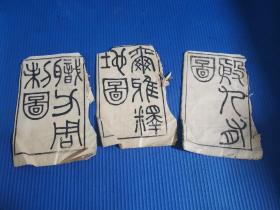 殷九有
圖
爾雅釋
地圖
職方周
制圖